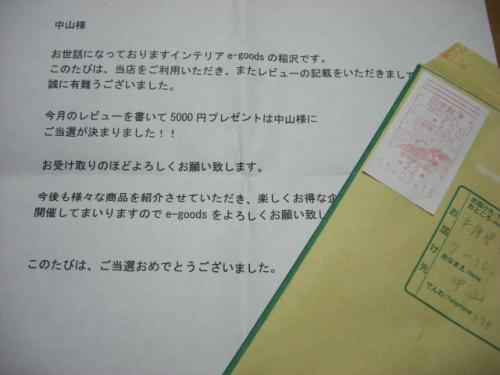 中山様
お世話になっておりますインテリア e-goods の稲沢です。
このたびは、当店をご利用いただき、またレビューの記載をいただきまして
誠に有難うございました。
今月のレビューを書いて 5000 円プレゼントは中山様に
ご当選が決まりました!!
お受け取りのほどよろしくお願い致します。
今後も様々な商品を紹介させていただき、楽しくお得な企
開催してまいりますので e-goods をよろしくお願い致し
このたびは、ご当選おめでとうございました。
お届け先
おところ
7-10
おなまえ:Name
中山
でんわ:Telephone